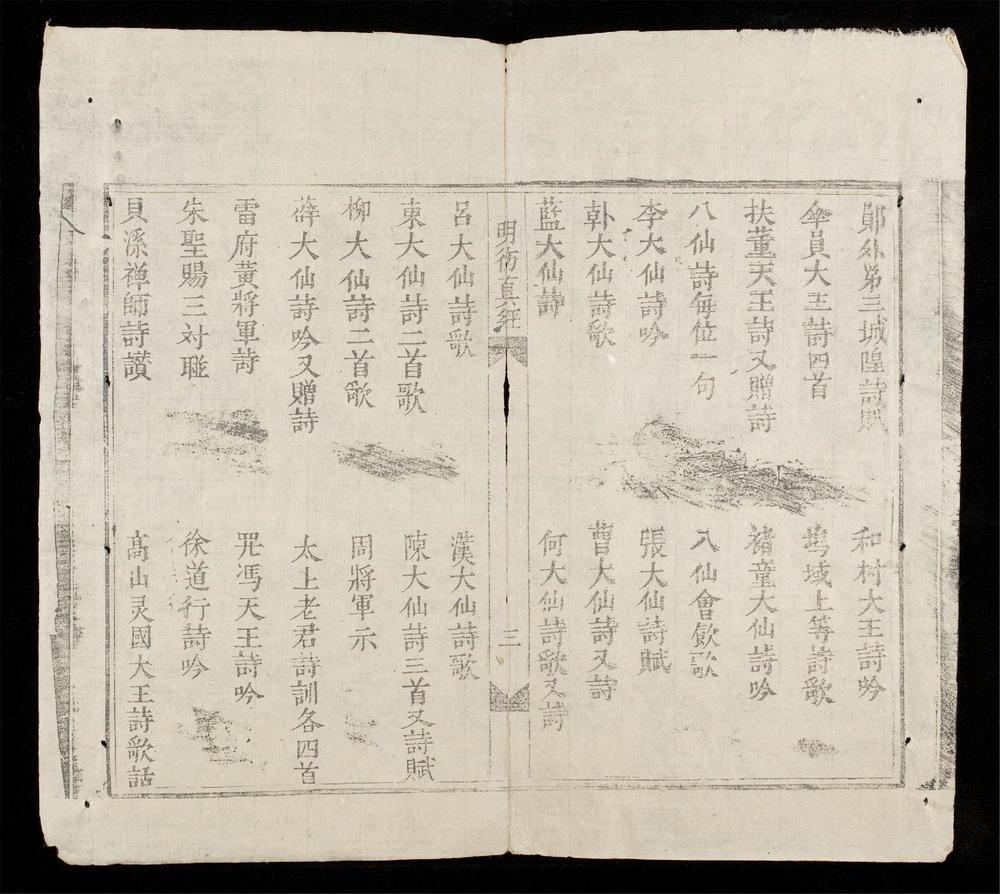 鄭外第三城隍詩賦
和村大王詩吟
傘員大王詩四首
域上等詩歌
扶董天王詩又贈詩
褚童大仙詩吟
八仙詩每位一句
八仙會飲歌
李大仙詩吟
張大仙詩賦
大仙詩歌
曹大仙詩又詩
藍大仙詩
何大仙詩歌又詩
明術真經
三
呂大仙詩歌
漢大仙詩歌
東大仙詩二首歌
陳大仙詩三首又詩賦
柳大仙詩二首歌
周將軍示
大仙詩吟又贈詩
太上老君詩訓各四首
雷府黃將軍詩
咒馮天王詩吟
朱聖賜三対聯
徐道行詩吟
貝溪禅師詩讃
高山灵國大王詩歌話